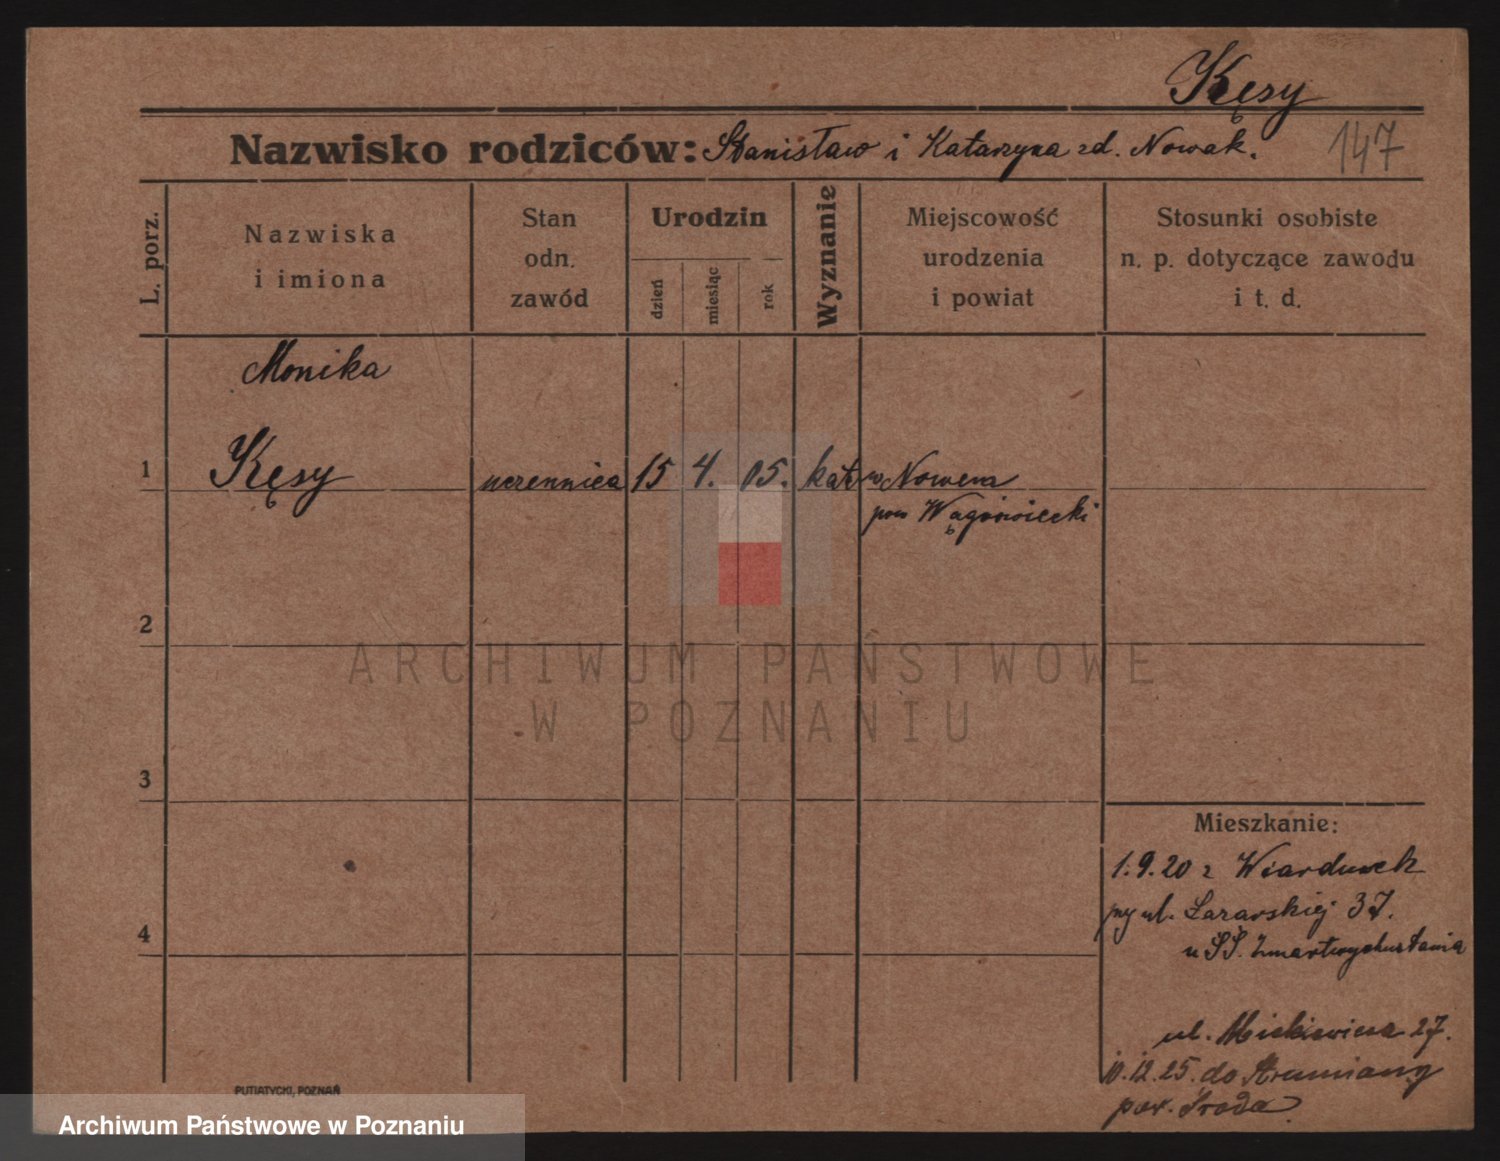 Kęsy
Nazwisko rodziców: Stanisław i Katarzyna zd. Nowak.
147
L. porz.
Nazwiska
i imiona
Stan
odn.
zawód
Urodzin
dzień
miesiąc
rok
Wyznanie
Miejscowość
urodzenia
i powiat
Stosunki osobiste
n. p. dotyczące zawodu
i t. d.
Monika
1 Kęsy uczennica 15 4. 05. kat w Nowem
pow Wągówiecki
2
3
4
ARCHIWUM PAŃSTWOWE
W POZNANIU
Mieszkanie:
1.9.20 z Wiardunek
przy ul. Łazarskiej 37.
u SS. Zmartwychwstania
ul. Mickiewicza 27.
10.12.25. do Strumiany
pow. Środa
PUTIATYCKI, POZNAŃ
Archiwum Państwowe w Poznaniu